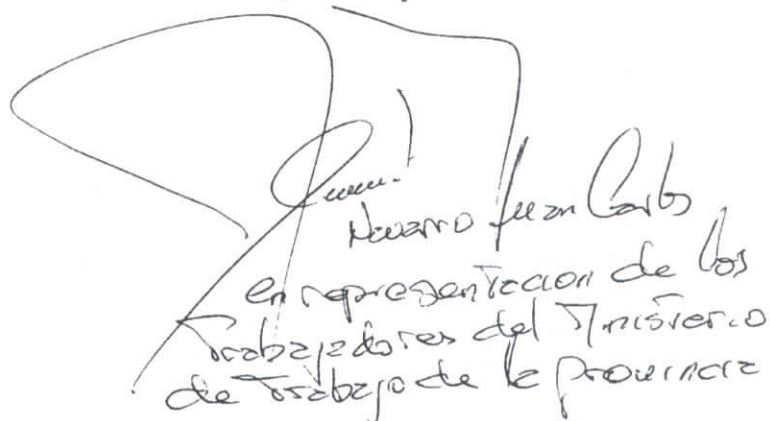 Navarro Juan Carlos
en representacion de los
Trabajadores del Ministerio
de Trabajo de la provincia